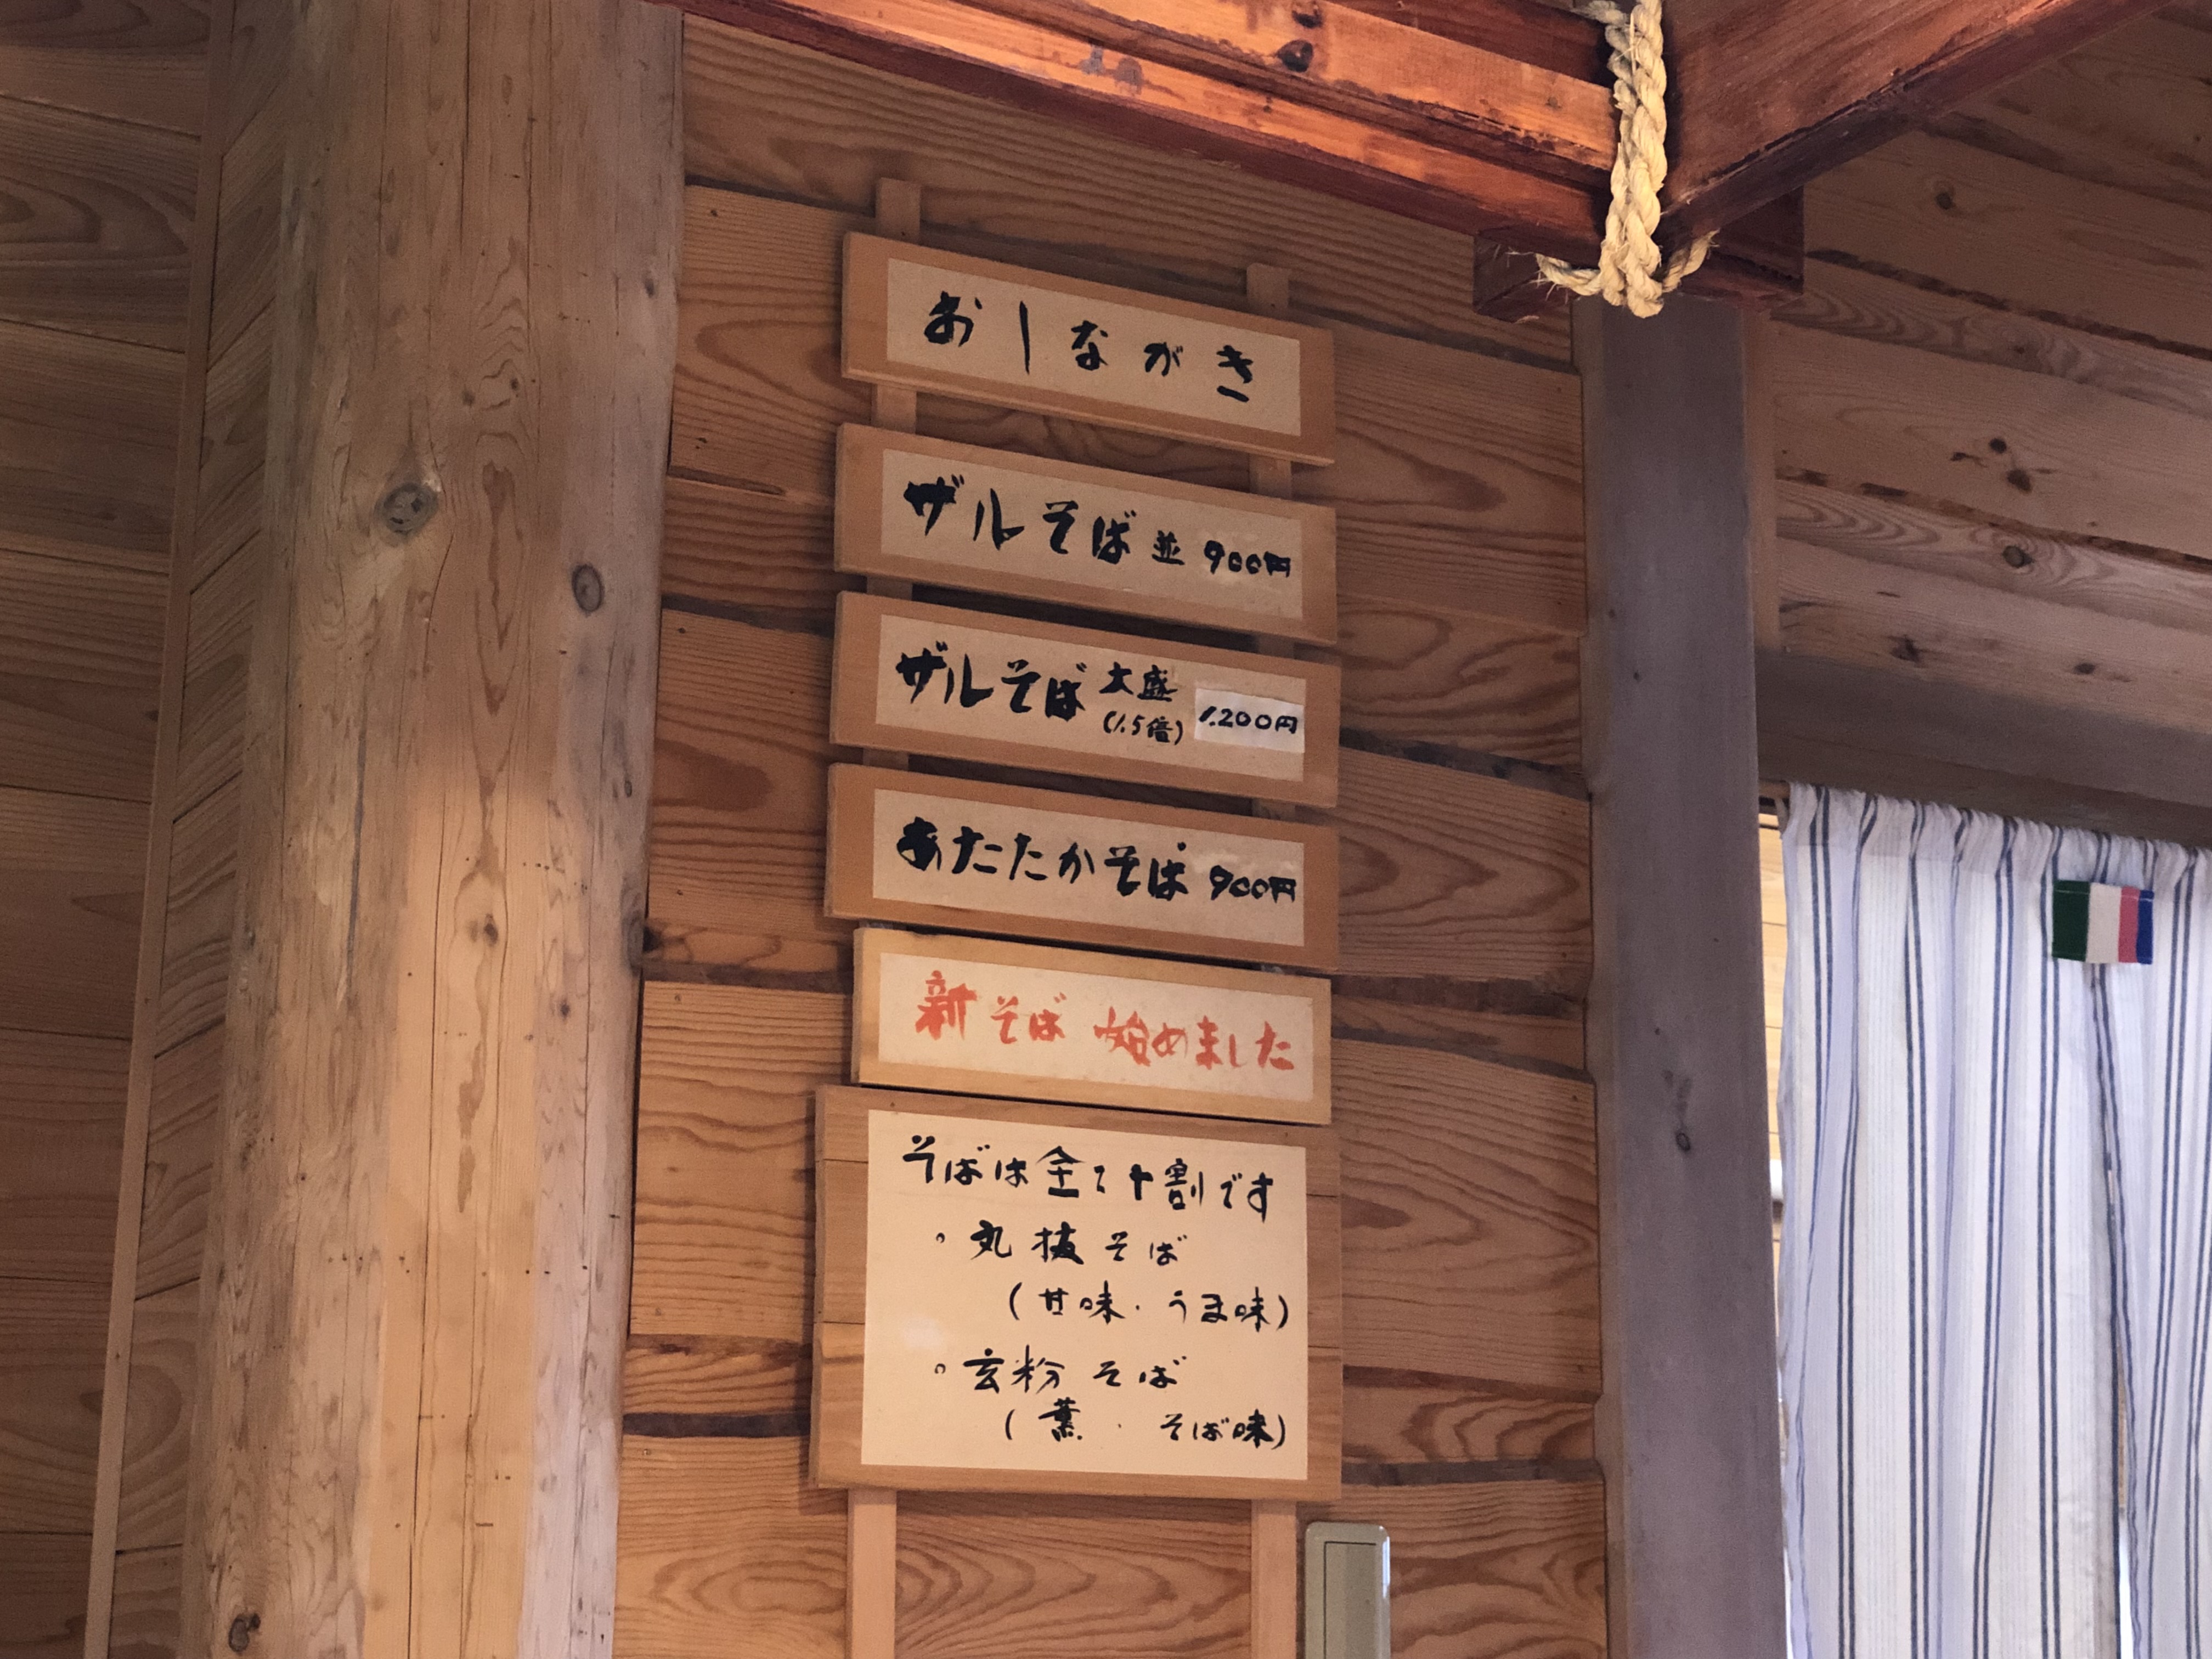 おしながき
ザルそば 並 900円
ザルそば 大盛 (1.5倍) 1,200円
あたたかそば 900円
新そば 始めました
そばは全て十割です
・丸抜そば
(甘味・うま味)
・玄粉そば
(薫・そば味)